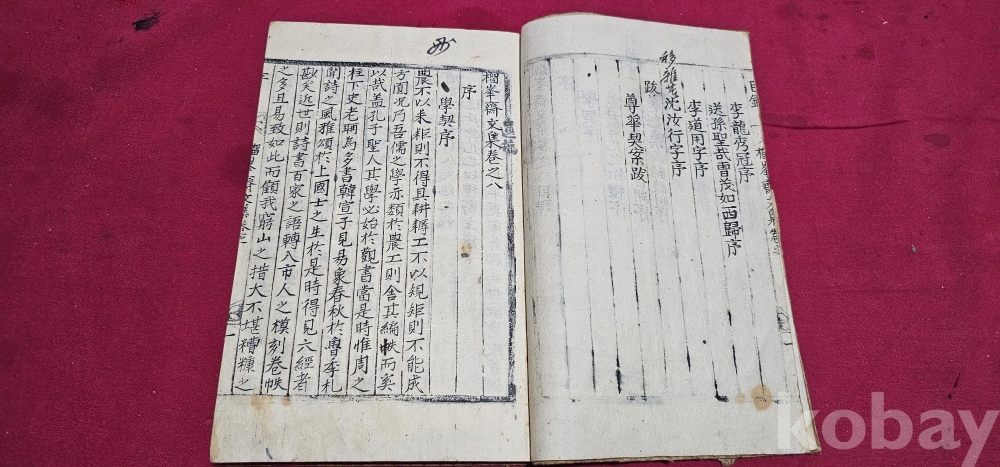 李龍秀冠序
送孫聖哉曺茂如西歸序
李道用字序
移雅莟沈汝行字序
跋
尊華契案跋
榴峯齋文集卷之八
序
學契序
農不以耒耟則不得具耕耨工不以規矩則不能成
方圓況乃吾儒之學亦類於農工則舍其編帙而奚
以哉盖孔子聖人其學必始於觀書當是時惟周之
柱下史老聃為多書韓宣子見易象春秋於魯季札
聞詩之風雅頌於上國士之生於是時得見六經者
歎矣近世則詩書百家之語轉入市人之模刻卷帙
之多且易致如此而顧我窮山之措大不堪糟糠之
kobay